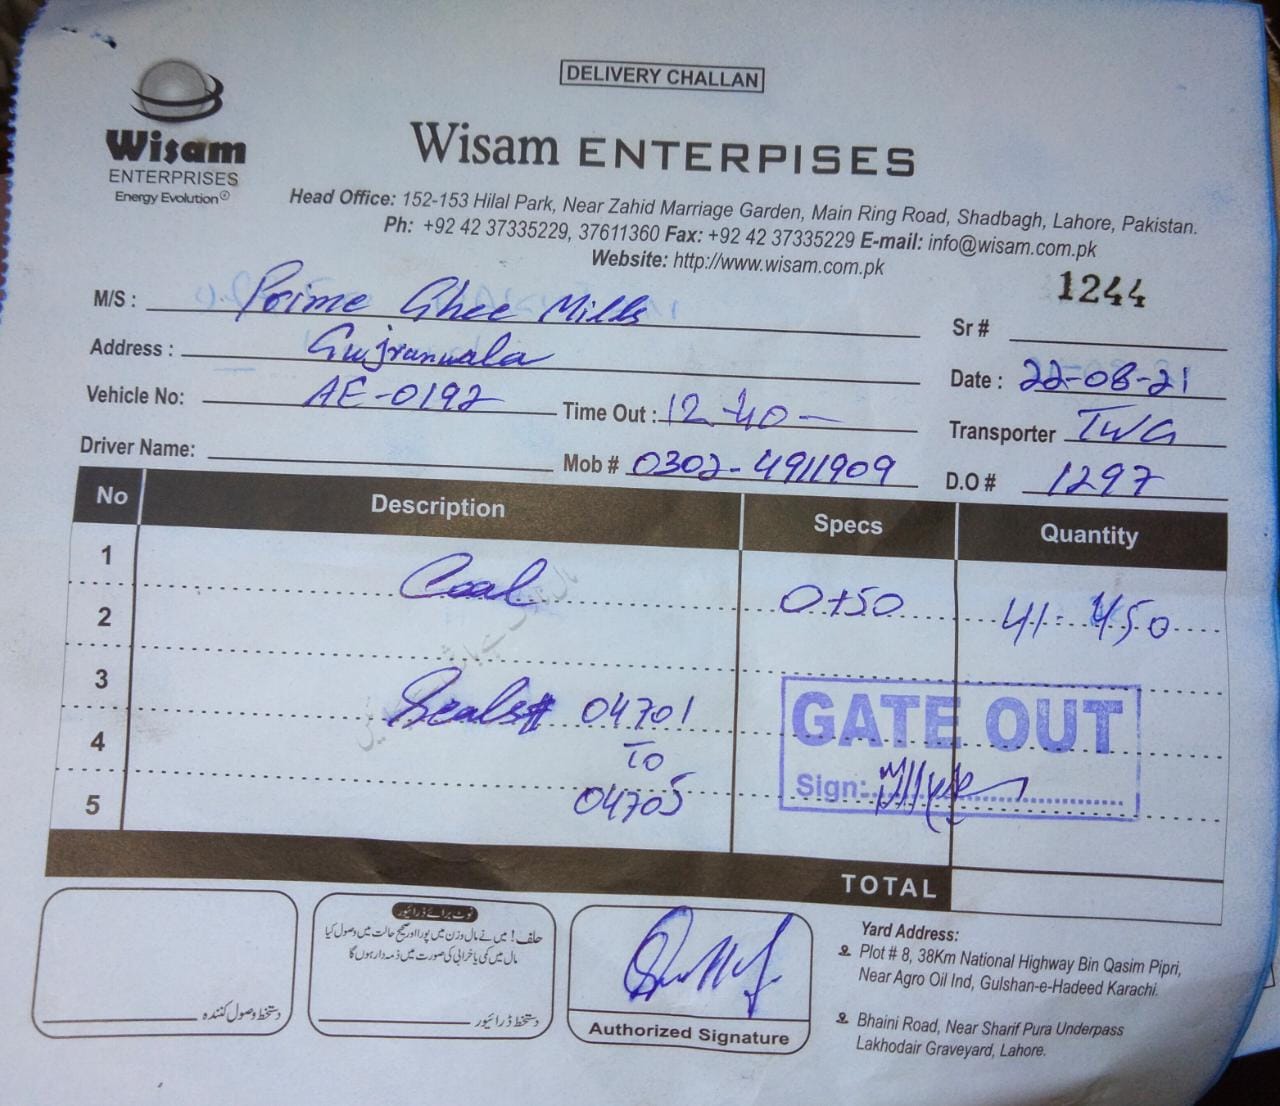 DELIVERY CHALLAN
Wisam
ENTERPRISES
Energy Evolution
Wisam ENTERPISES
Head Office: 152-153 Hilal Park, Near Zahid Marriage Garden, Main Ring Road, Shadbagh, Lahore, Pakistan.
Ph: +92 42 37335229, 37611360 Fax: +92 42 37335229 E-mail: info@wisam.com.pk
Website: http://www.wisam.com.pk
1244
M/S : Prime Ghee Mills
Sr #
Address : Gujranwala
Date : 22-08-21
Vehicle No: AE-0192 Time Out : 12-40-
Transporter TWG
Driver Name: Mob # 0302-4911909
D.O # 1297
No Description Specs Quantity
1
Coal 0+50 41-450
2
3
Seals# 04701
4
To
04705
5
GATE OUT
Sign:
TOTAL
نوٹ برائے ڈرائیور
حلف! میں نے مال وزن میں پورا اور صحیح حالت میں وصول کیا
مال میں کمی یا خرابی کی صورت میں ذمہ دار ہوں گا
دستخط وصول کنندہ
دستخط ڈرائیور
Authorized Signature
Yard Address:
Plot # 8, 38Km National Highway Bin Qasim Pipri,
Near Agro Oil Ind, Gulshan-e-Hadeed Karachi.
Bhaini Road, Near Sharif Pura Underpass
Lakhodair Graveyard, Lahore.